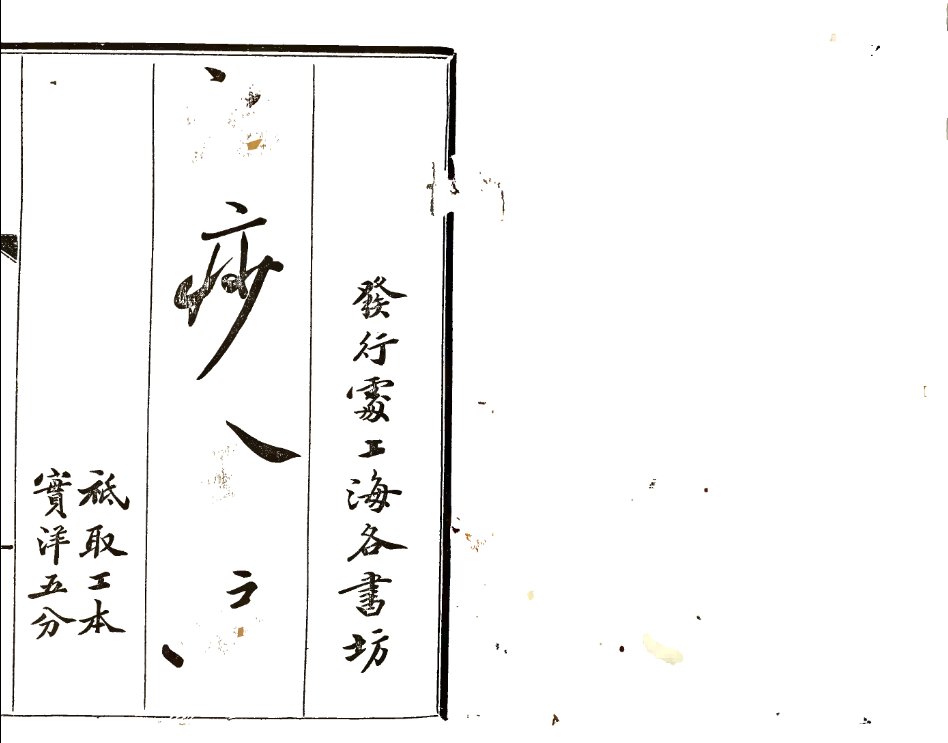 發行處上海各書坊
痧
祇取工本
實洋五分